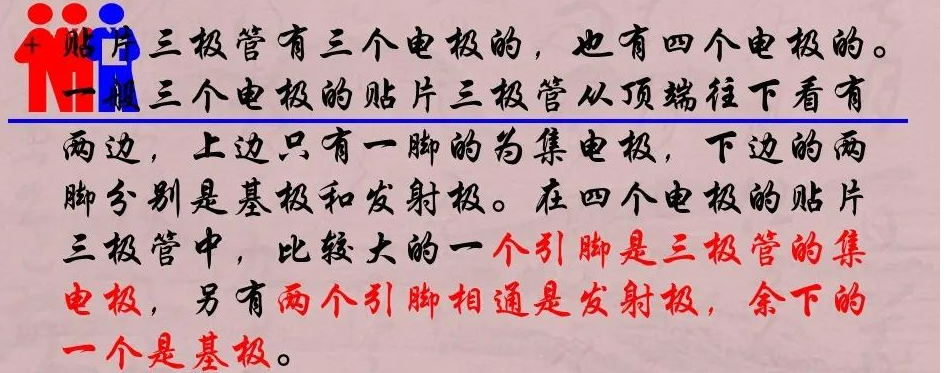 + 贴片三极管有三个电极的，也有四个电极的。
一般三个电极的贴片三极管从顶端往下看有
两边，上边只有一脚的为集电极，下边的两
脚分别是基极和发射极。在四个电极的贴片
三极管中，比较大的一个引脚是三极管的集
电极，另有两个引脚相通是发射极，余下的
一个是基极。